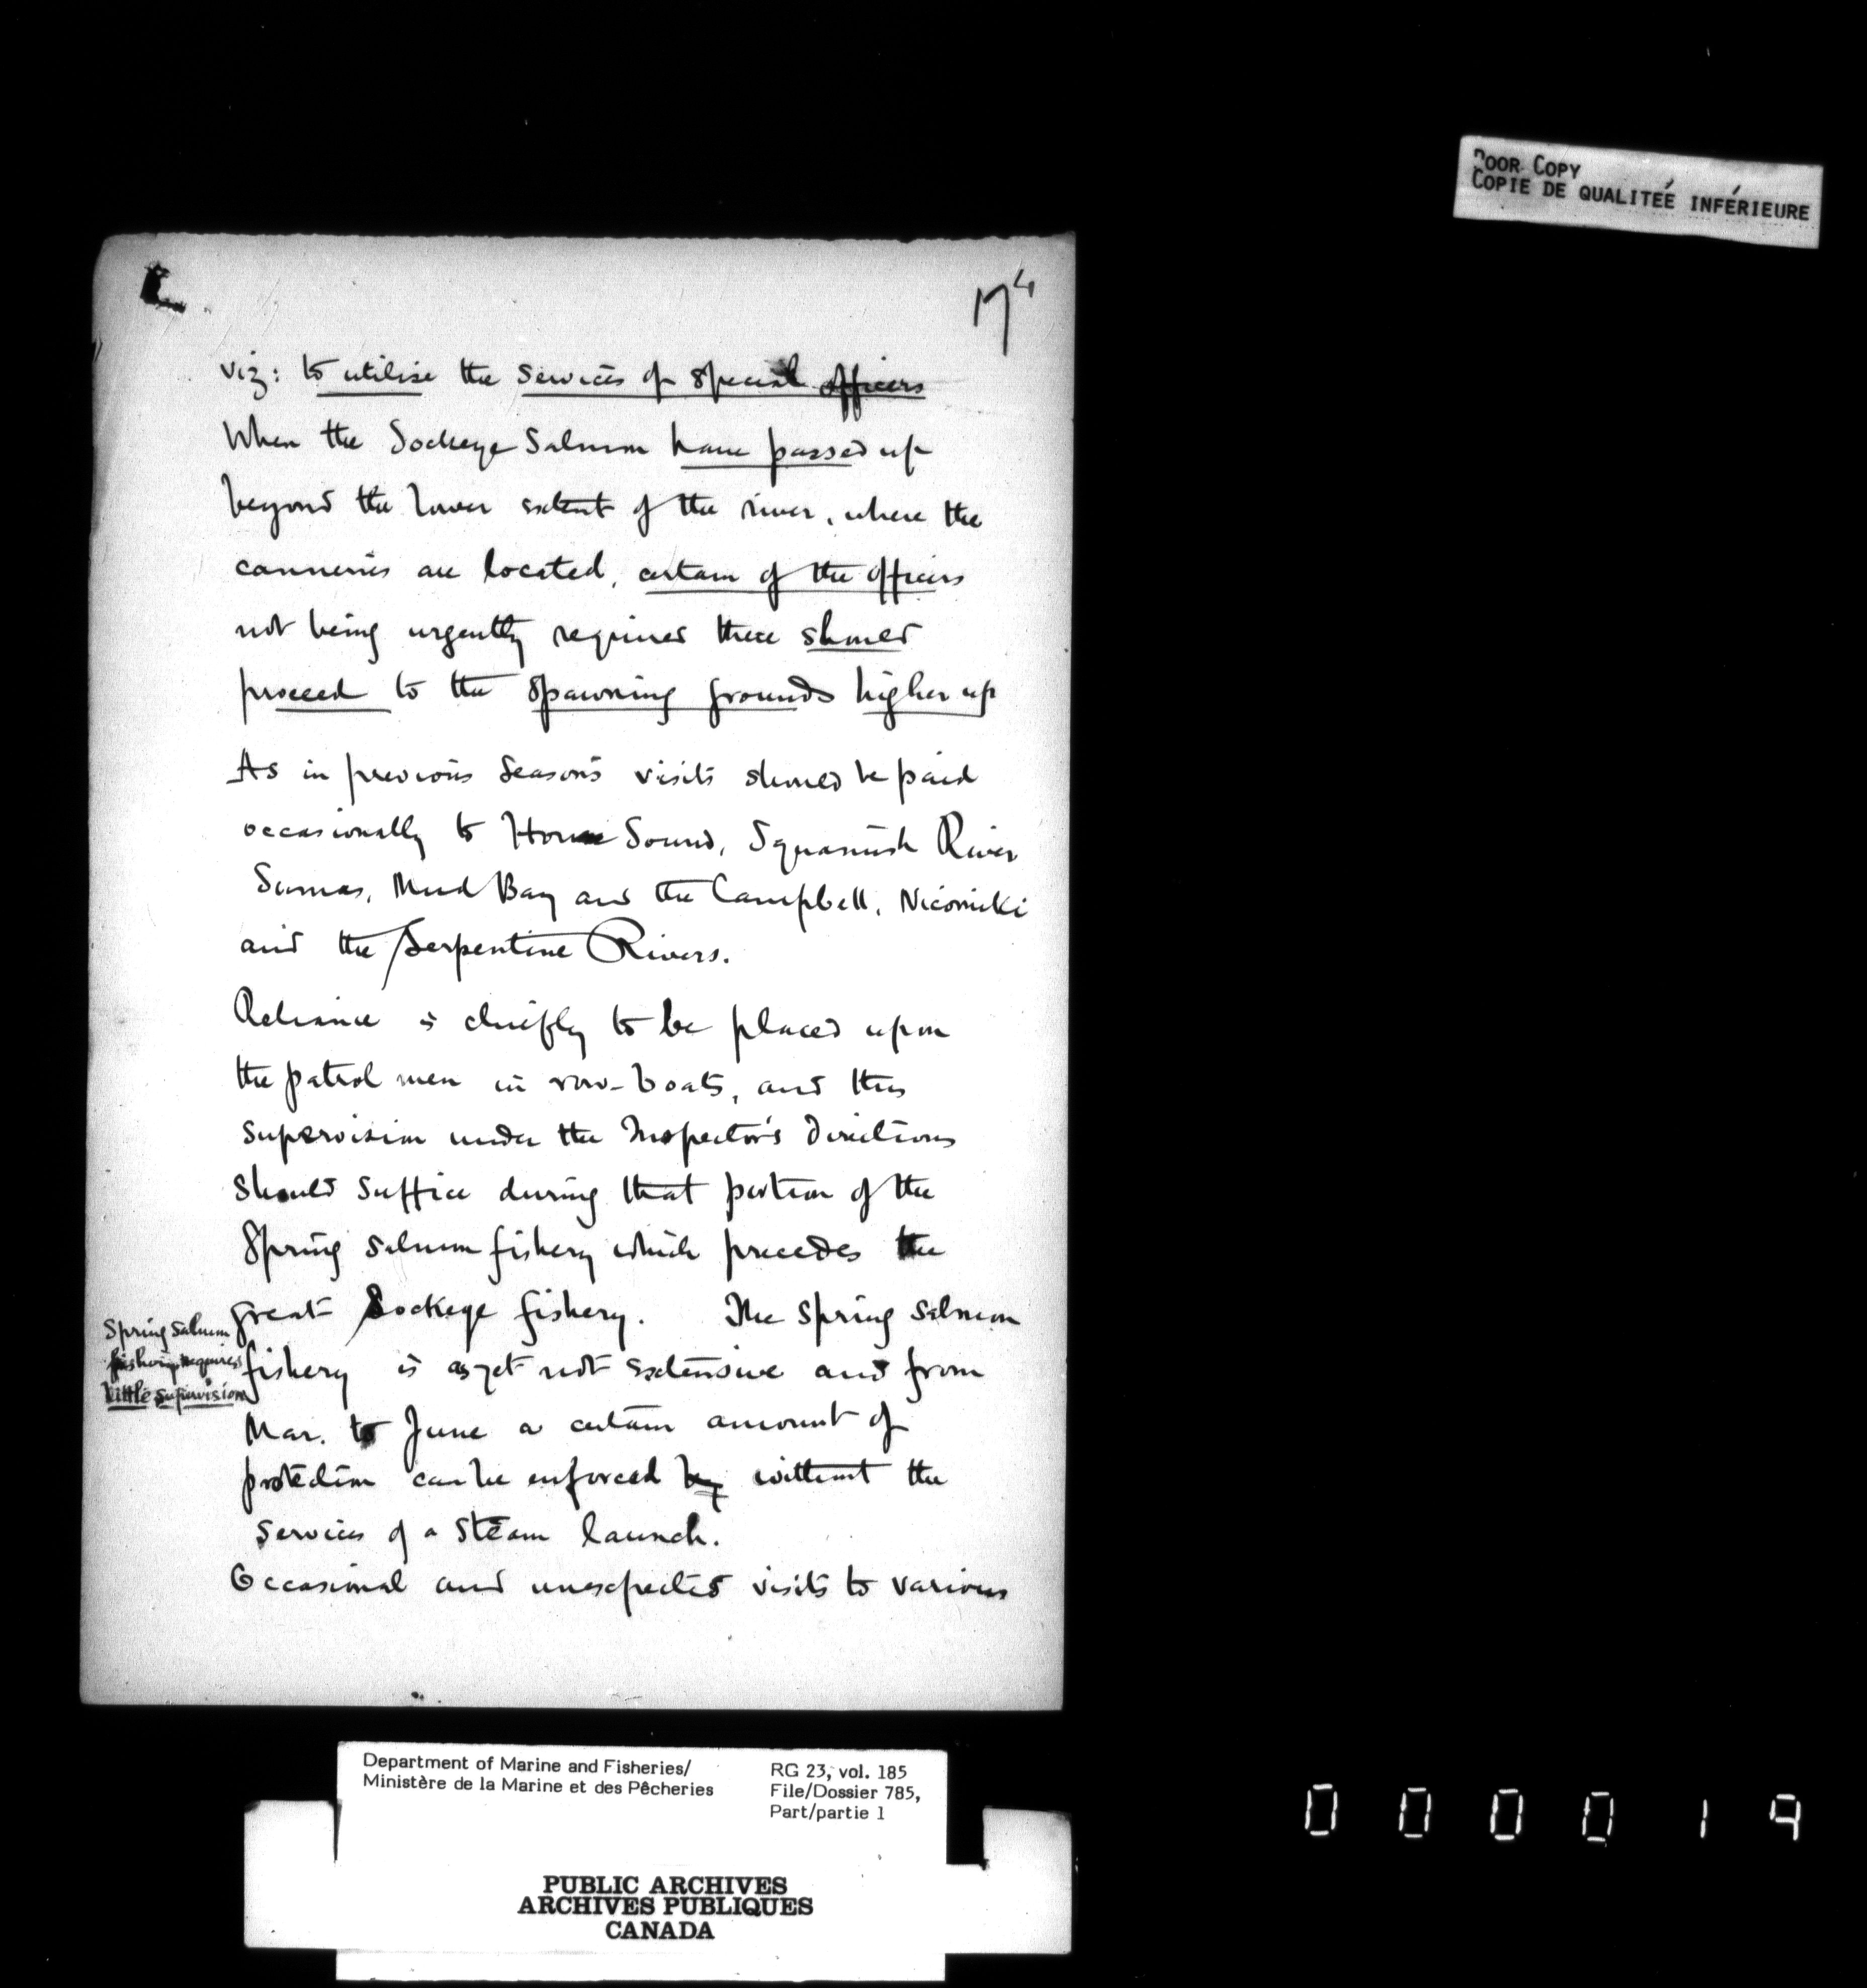 POOR COPY
COPIE DE QUALITEÉ INFÉRIEURE
17
viz: to utilise the services of special officers
When the Sockeye Salmon have passed up
beyond the lower extent of the river, where the
canneries are located, certain of the officers
not being urgently required there should
proceed to the spawning grounds higher up
As in previous seasons visits should be paid
occasionally to Howe Sound, Squamish River
Sumas, Mud Bay and the Campbell, Nicomiki
and the Serpentine Rivers.
Reliance is chiefly to be placed upon
the patrol men in row-boats, and this
supervision under the Inspector's directions
should suffice during that portion of the
Spring salmon fishery which precedes the
great Sockeye fishery. The spring salmon
Spring Salmon
fishing requires
little supervision
fishery is as yet not extensive and from
Mar. to June a certain amount of
protection can be enforced by without the
services of a steam launch.
Occasional and unexpected visits to various
Department of Marine and Fisheries/
Ministère de la Marine et des Pêcheries
RG 23, vol. 185
File/Dossier 785,
Part/partie 1
PUBLIC ARCHIVES
ARCHIVES PUBLIQUES
CANADA
0 0 0 0 1 9